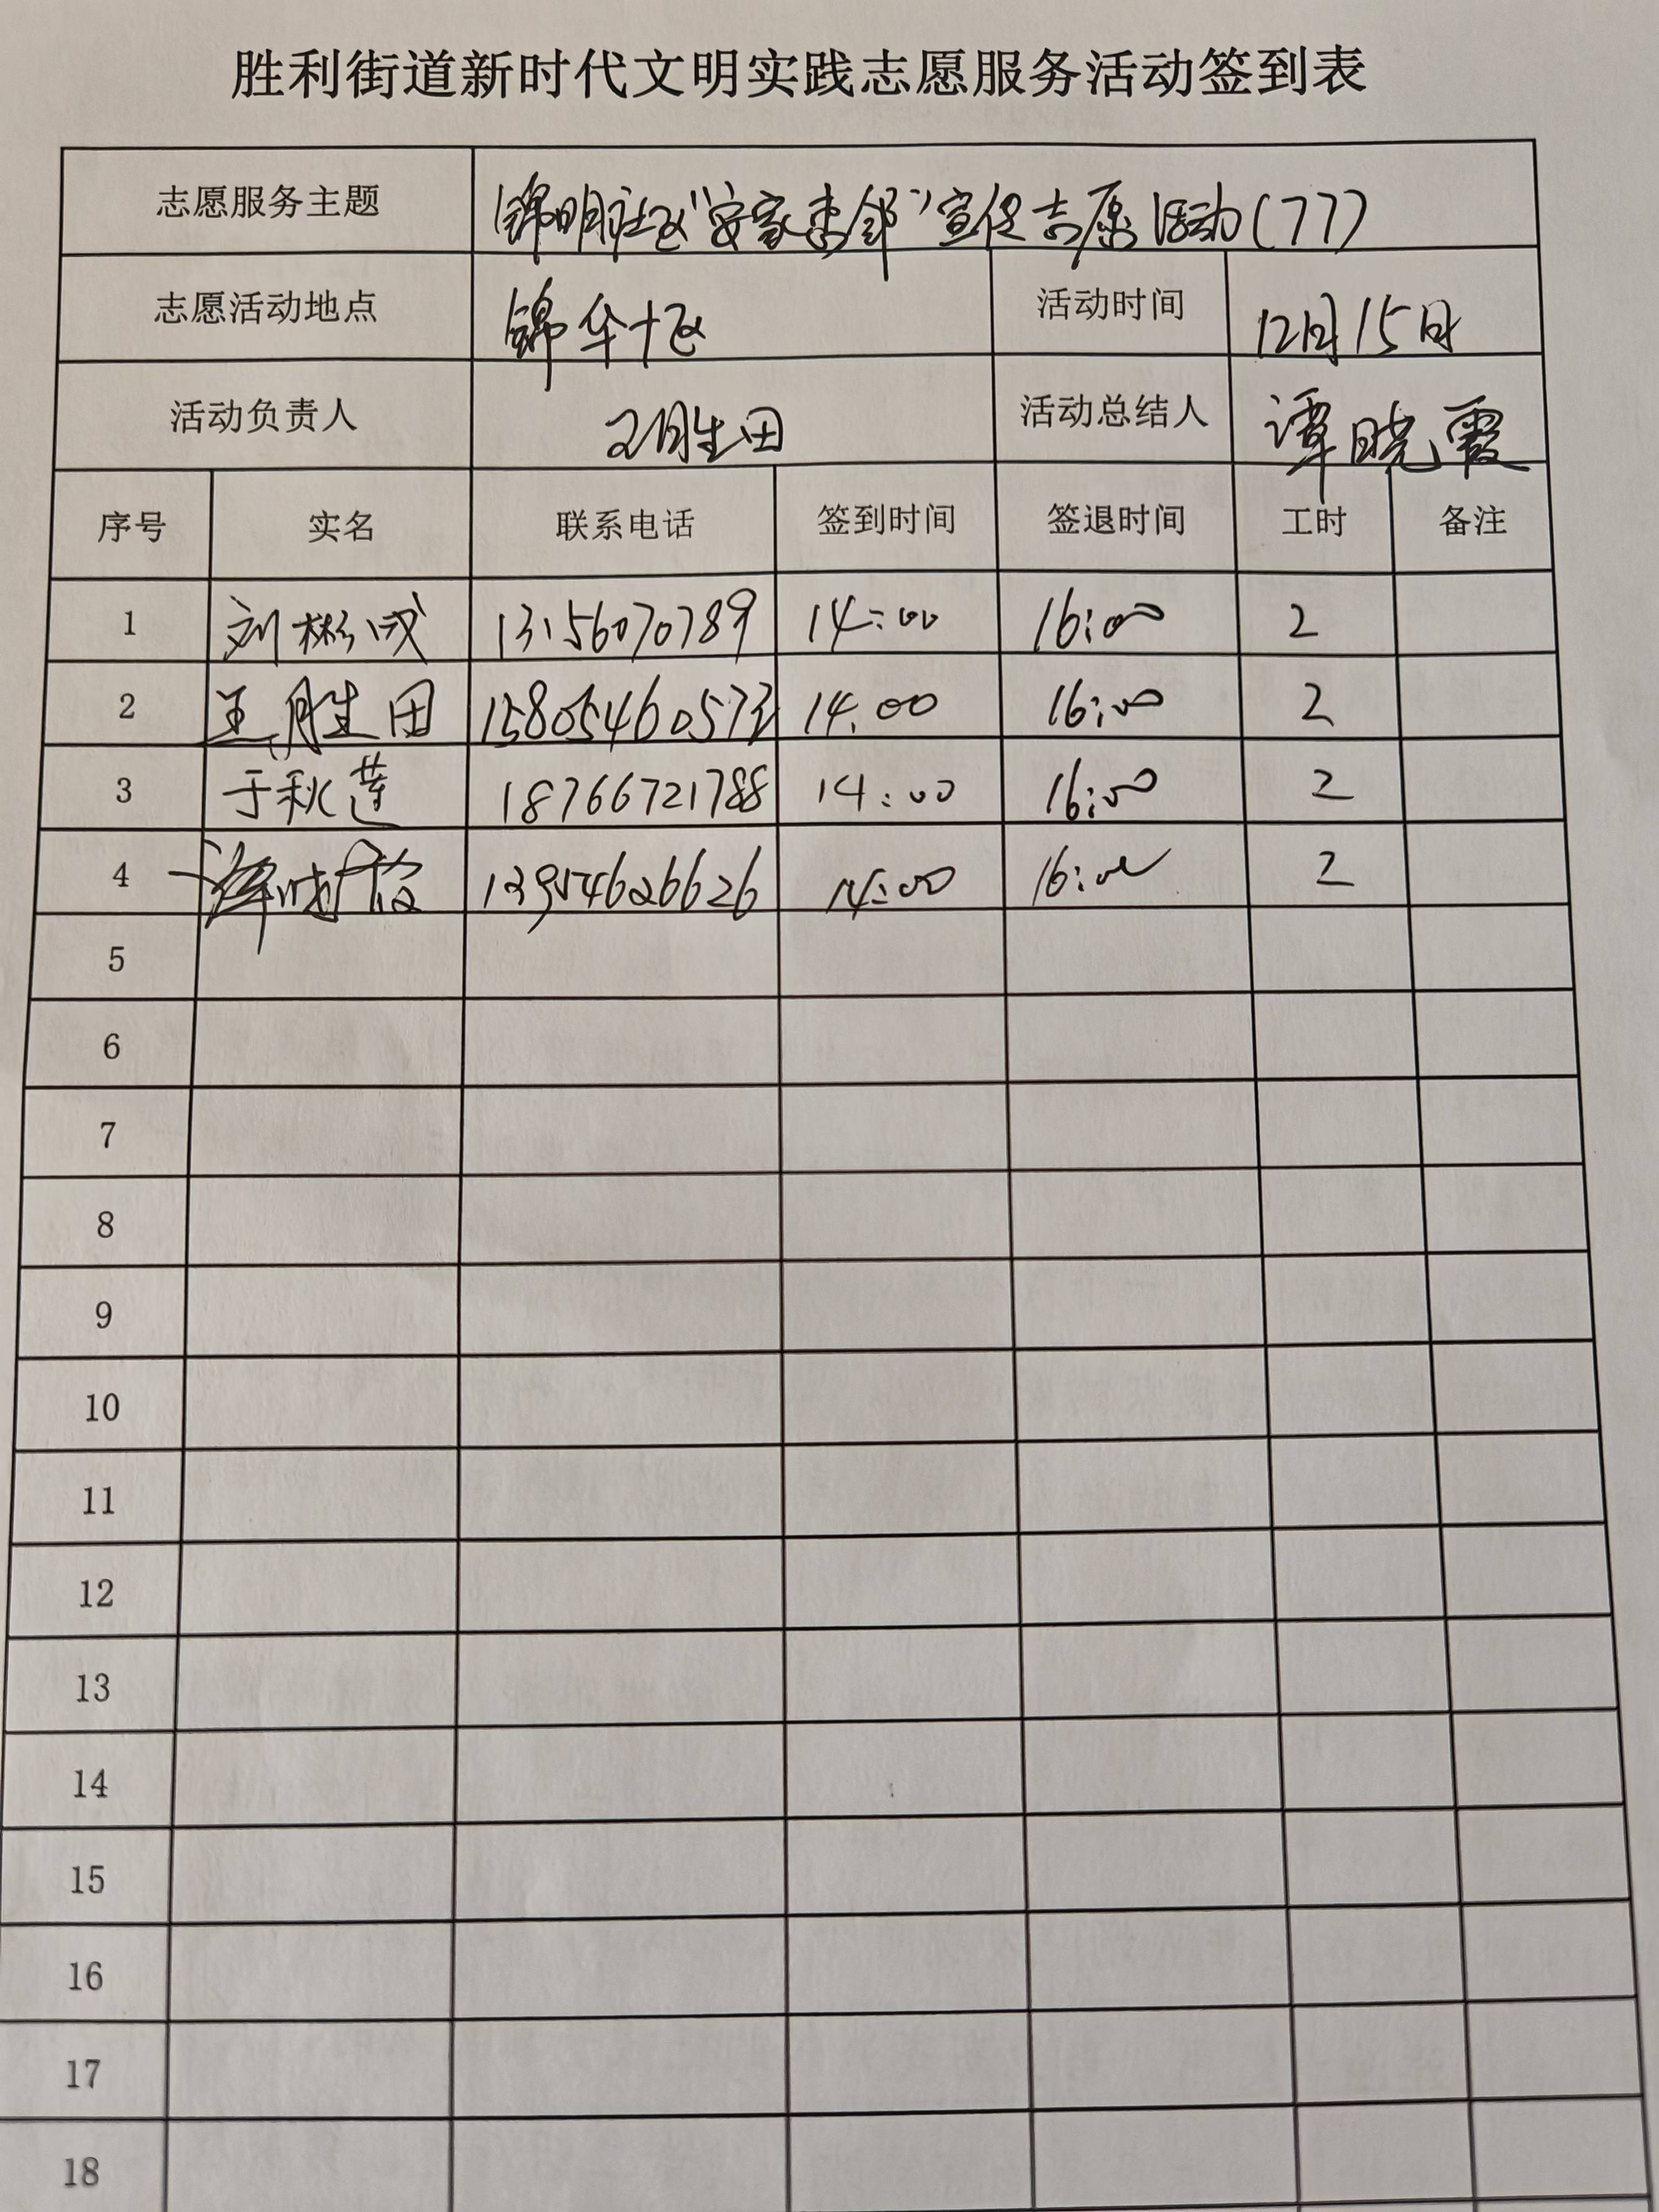 胜利街道新时代文明实践志愿服务活动签到表
志愿服务主题 锦明社区"安家 邻"宣 志愿活动(77)
志愿活动地点 锦华十区 活动时间 12月15日
活动负责人 王胜田 活动总结人 谭晓霞
序号 实名 联系电话 签到时间 签退时间 工时 备注
1 刘彬成 13156070789 14:00 16:00 2
2 王胜田 15805460573 14:00 16:00 2
3 于秋莲 18766721788 14:00 16:00 2
4 13954626626 14:00 16:00 2
5
6
7
8
9
10
11
12
13
14
15
16
17
18